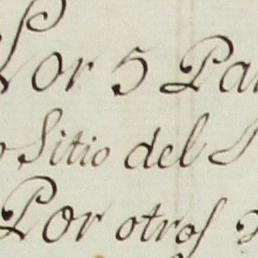 Por 5 Pa
Sitio del
Por otros